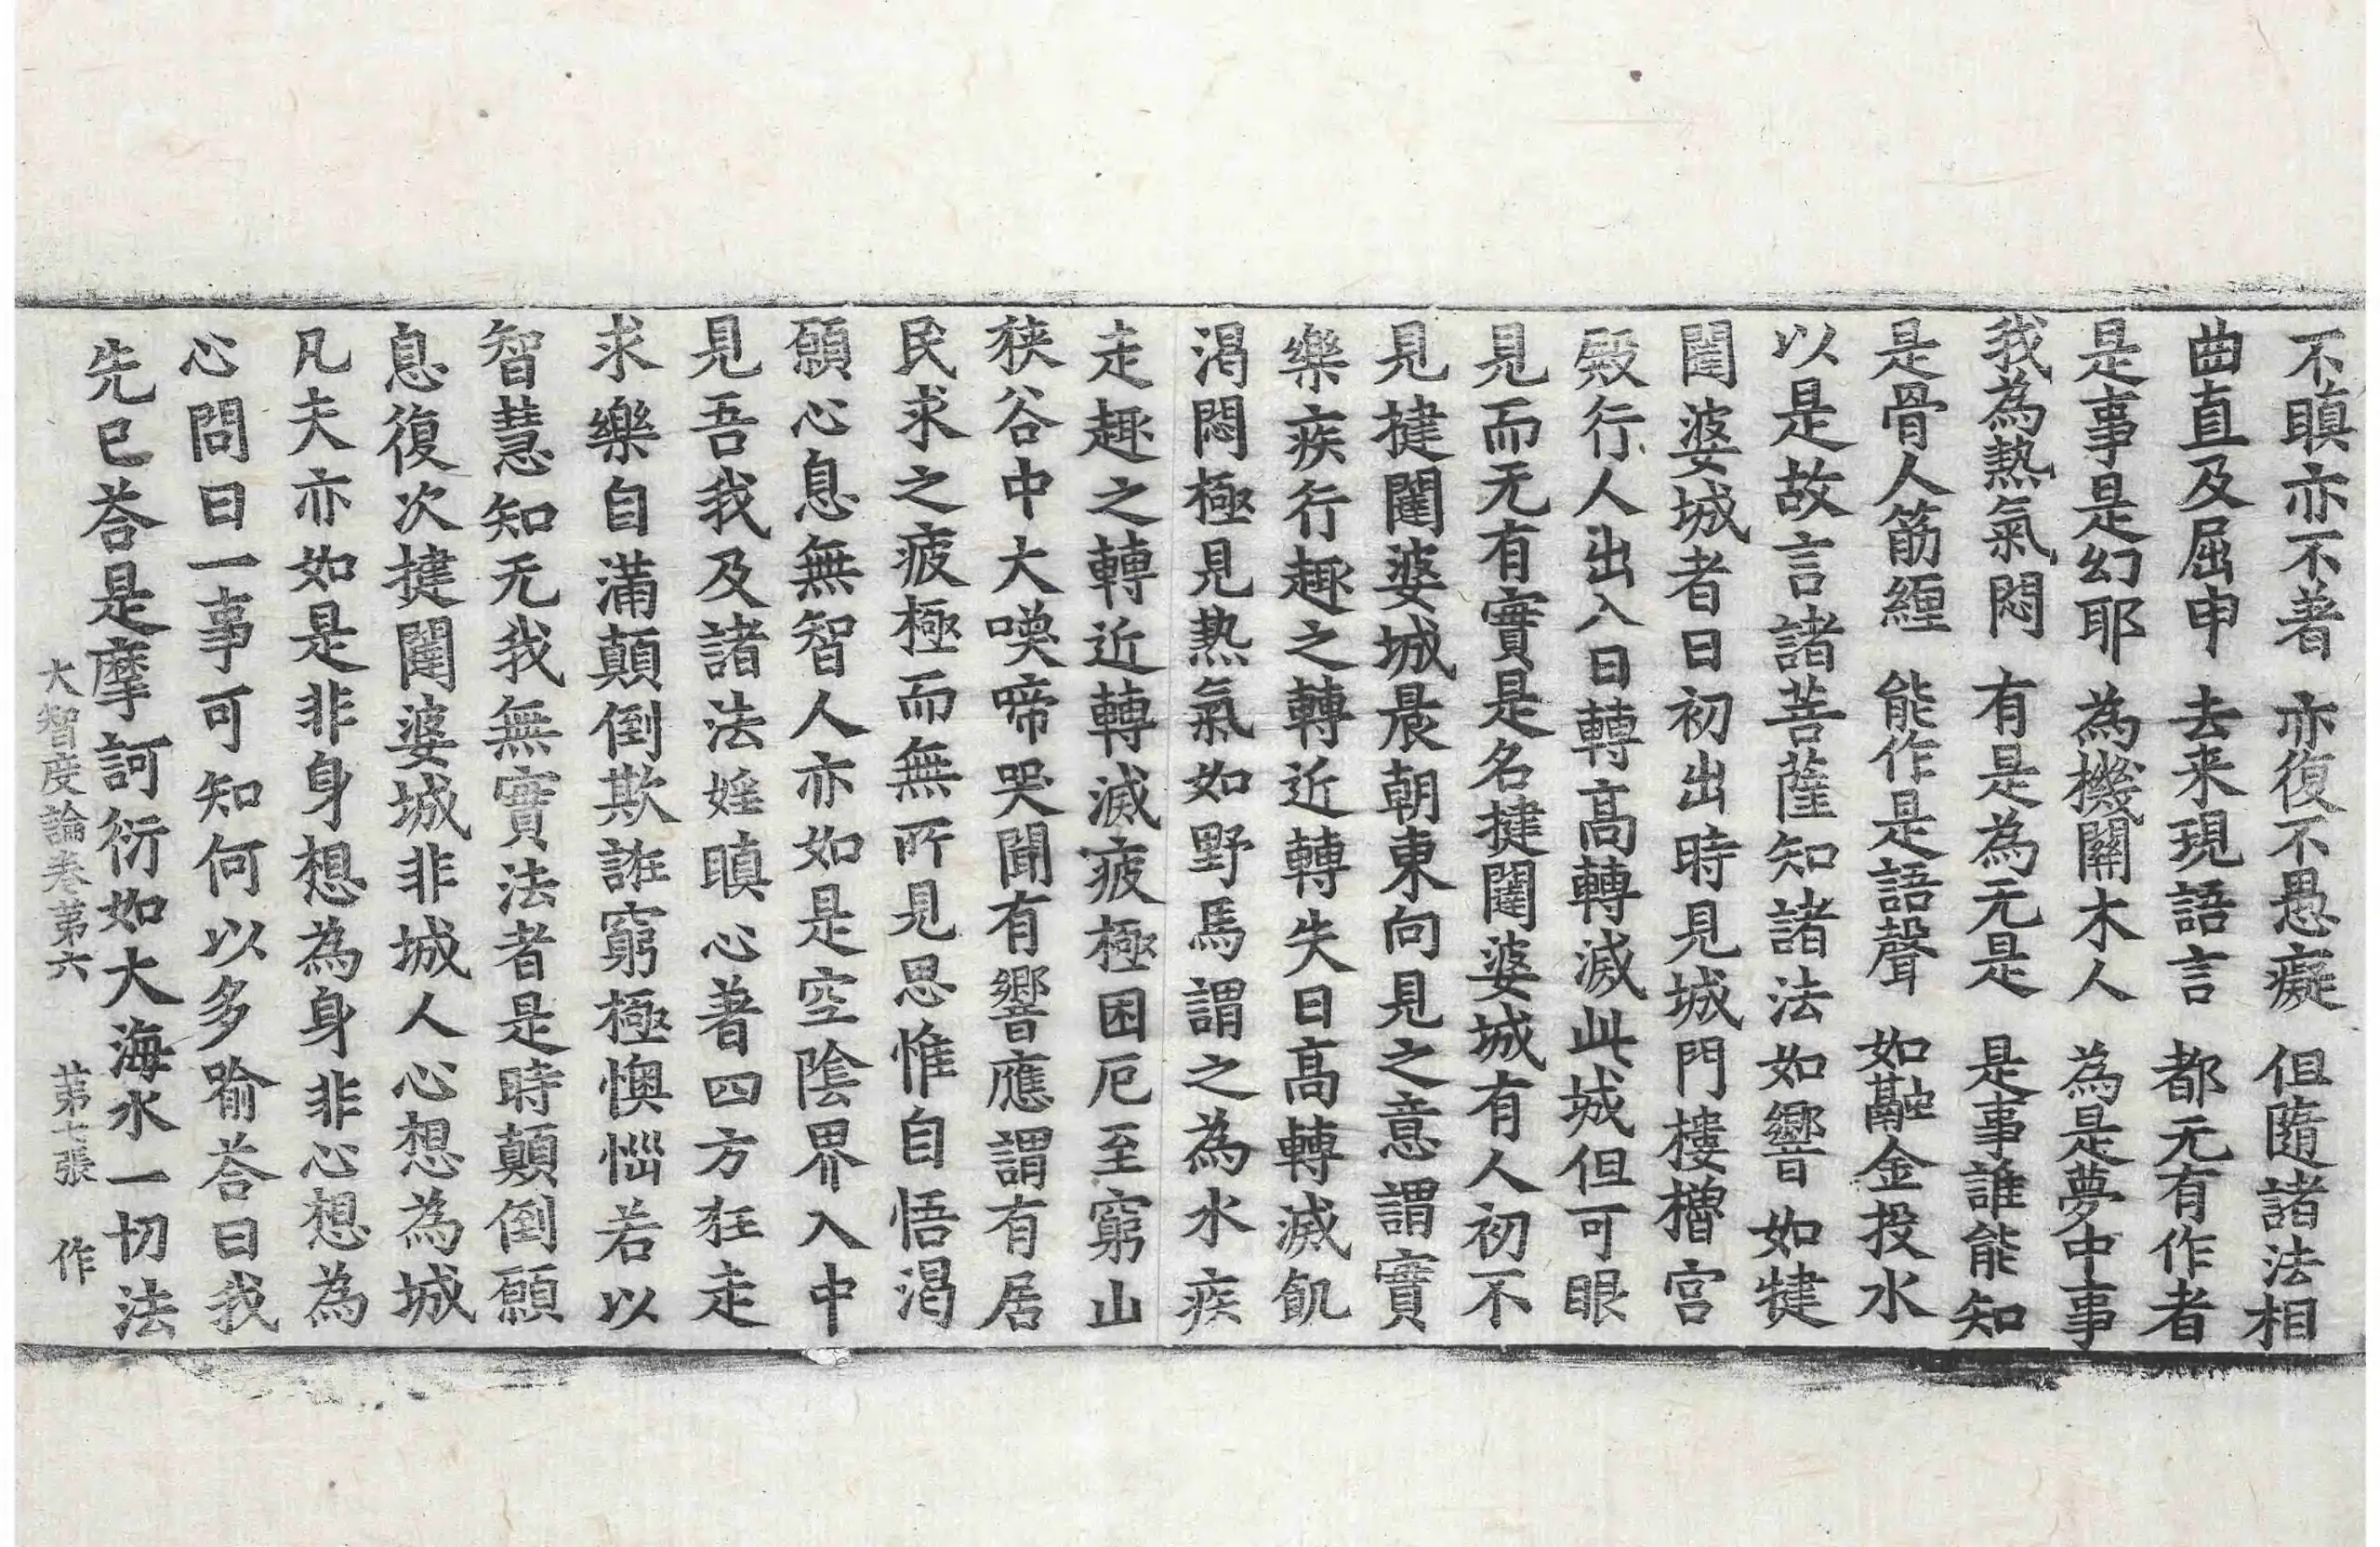 不瞋亦不著　亦復不愚癡　但隨諸法相
曲直及屈申　去来現語言　都无有作者
是事是幻耶　為機關木人　為是夢中事
我為熱氣悶　有是為无是　是事誰能知
是骨人筋纏　能作是語聲　如融金投水
以是故言諸菩薩知諸法如響如揵
闥婆城者日初出時見城門樓櫓宮
殿行人出入日轉高轉滅此城但可眼
見而无有實是名揵闥婆城有人初不
見揵闥婆城晨朝東向見之意謂實
樂疾行趣之轉近轉失日高轉滅飢
渴悶極見熱氣如野馬謂之為水疾
走趣之轉近轉滅疲極困厄至窮山
狹谷中大喚啼哭聞有響應謂有居
民求之疲極而無所見思惟自悟渴
願心息無智人亦如是空陰界入中
見吾我及諸法婬瞋心著四方狂走
求樂自滿顛倒欺誑窮極懊惱若以
智慧知无我無實法者是時顛倒願
息復次揵闥婆城非城人心想為城
凡夫亦如是非身想為身非心想為
心問曰一事可知何以多喻荅曰我
先已荅是摩訶衍如大海水一切法
大智度論卷第六　第七張　作